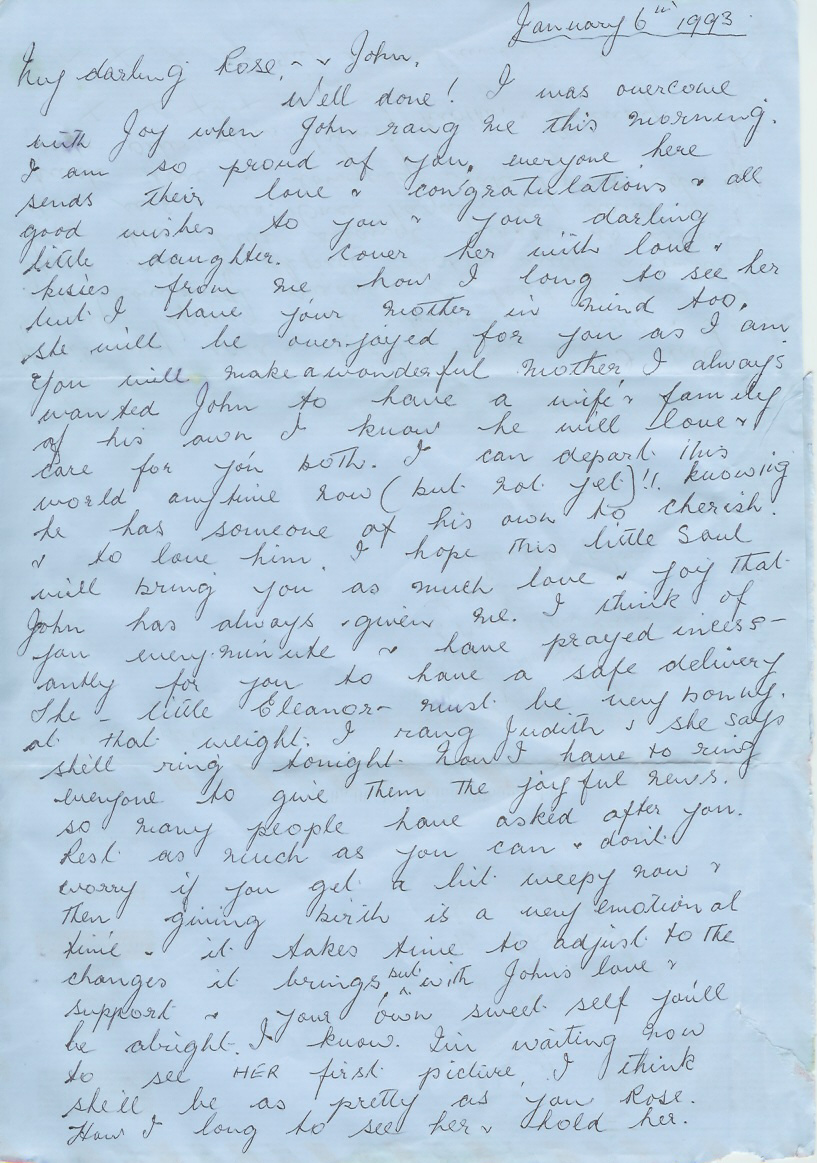 January 6th 1993.
My darling Rose, & John,
Well done! I was overcome
with Joy when John rang me this morning.
I am so proud of you, everyone here
sends their love & congratulations & all
good wishes to you & your darling
little daughter. Cover her with love &
kisses from me how I long to see her
but I have your mother in mind too.
she will be overjoyed for you as I am.
You will make a wonderful mother I always
wanted John to have a wife & family
of his own I know he will love &
care for you both. I can depart this
world anytime now (but not yet)!! knowing
he has someone of his own to cherish.
& to love him. I hope this little soul
will bring you as much love & joy that
John has always given me. I think of
you every minute & have prayed incess-
antly for you to have a safe delivery
She - little Eleanor - must be very bonny.
at that weight. I rang Judith & she says
she'll ring tonight. Now I have to ring
everyone to give them the joyful news.
so many people have asked after you.
Rest as much as you can & don't
worry if you get a bit weepy now &
then giving birth is a very emotional
time - it takes time to adjust to the
changes it brings but with John's love &
support & your own sweet self you'll
be alright. I know. I'm waiting now
to see HER first picture, I think
she'll be as pretty as you Rose.
How I long to see her & hold her.